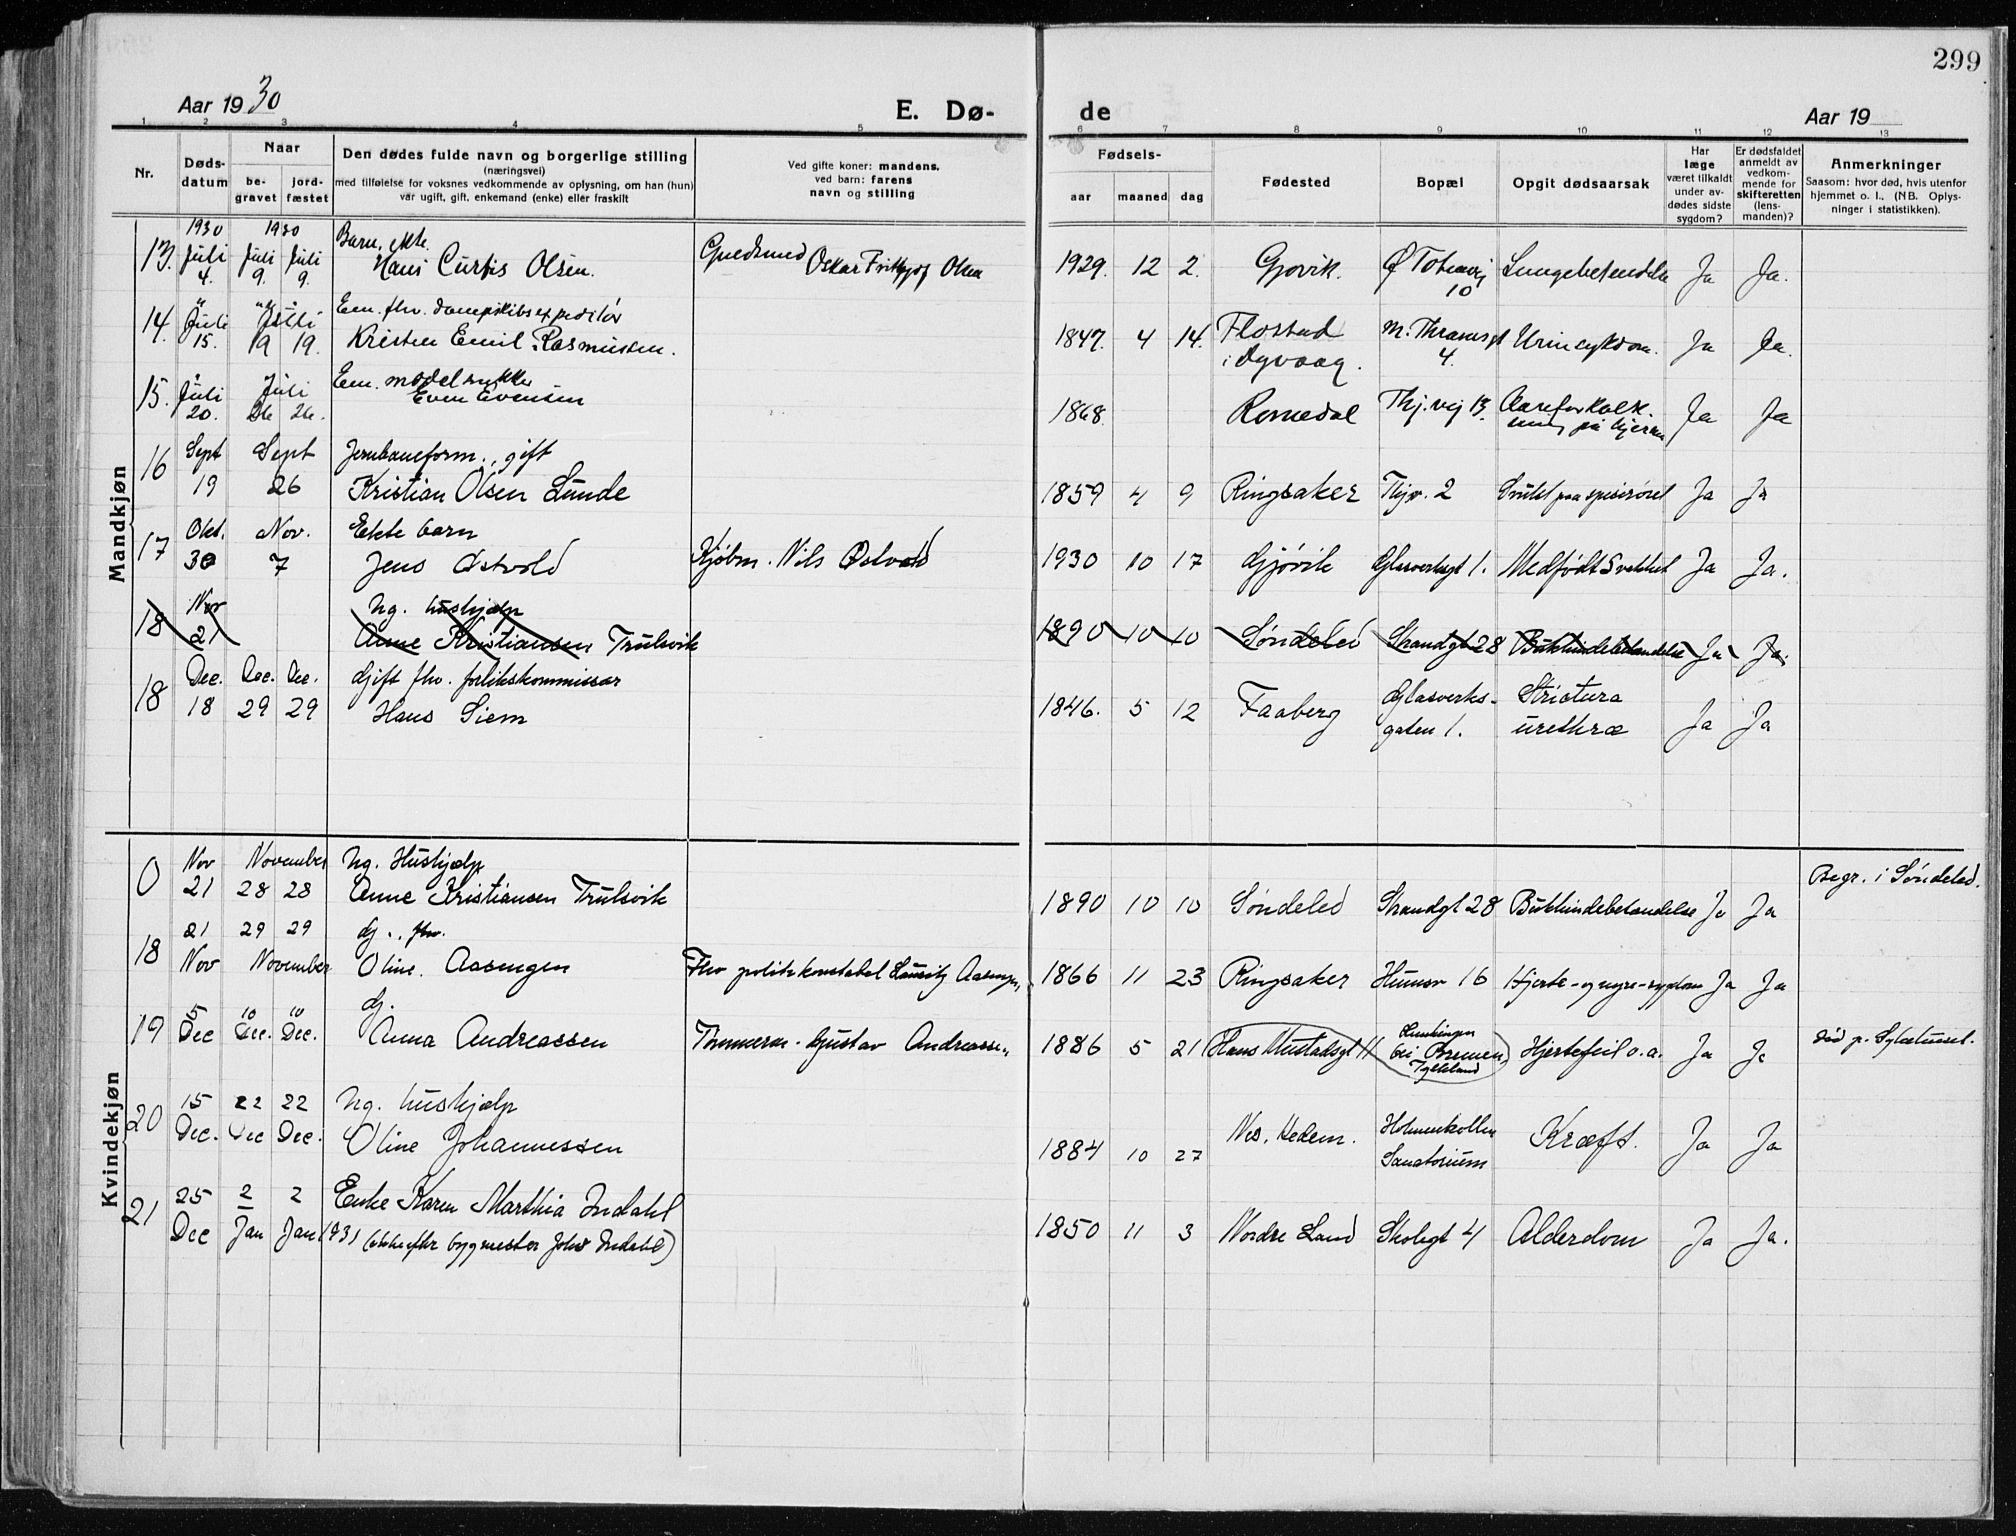 299
Aar 1930
E. Dø-
de
Aar 19
1 2 3 4 5 6 7 8 9 10 11 12 13
Nr.
Døds-
datum
Naar
be-
gravet
jord-
fæstet
Den dødes fulde navn og borgerlige stilling
(næringsvei)
med tilføielse for voksnes vedkommende av oplysning, om han (hun)
var ugift, gift, enkemand (enke) eller fraskilt
Ved gifte koner: mandens.
ved barn: farens
navn og stilling
Fødsels-
aar
maaned
dag
Fødested
Bopæl
Opgit dødsaarsak
Har
læge
været tilkaldt
under av-
dødes sidste
sygdom?
Er dødsfaldet
anmeldt av
vedkom-
mende for
skifteretten
(lens-
manden)?
Anmerkninger
Saasom: hvor død, hvis utenfor
hjemmet o. l., (NB. Oplys-
ninger i statistikken).
Mandkjøn
1930 1930 Barn, ekte.
13. Juli Juli Juli Hans Curtis Olsen. Oskar Fritjof Olsen 1929. 12 2. Gjøvik. Ø Totenvej Lungebetendelse Ja Ja.
4. 9. 9. 10
Em. fhv. dampskibsexpeditør
14. Juli Juli Kristen Emil Rasmussen. 1847. 4 14. Flostad M. Thranesgt Urinsykdom. Ja Ja.
15. 19 19. i Dyvaag. 4.
Em. modelsnekker
15. Juli Juli Even Evensen 1868. Romedal Thj.vej 13. Aareforkalk- Ja Ja
20. 26 26. ning på hjernen
16 Sept Sept Jernbaneform., gift
19 26 Kristian Olsen Lunde 1859 4 9 Ringsaker Thjv. 2 Svulst paa spiserøret Ja Ja
17 Okt. Nov. Ekte barn
30 7 Jens Østvold Kjøbm. Nils Østvold 1930 10 17 Gjøvik Glasverksgt 1. Medfødt svakhet Ja Ja.
18 Nov Ug. hushjælp
21 Anne Kristiansen Trulsvik 1890 10 10 Søndeled Strandgt 28 Bukhindebetændelse Ja Ja.
18 Dec. Dec. Dec. Gift fhv. forlikskommissær
18 29 29 Hans Siem 1846. 5 12 Faaberg Glasverks- Strictura Ja Ja
gaten 1. urethræ
Kvindekjøn
0 Nov November Ug. Hushjælp Begr. i Søndeled.
21 28 28 Anne Kristiansen Trulsvik 1890 10 10 Søndeled Strandgt 28 Bukhindebetændelse Ja Ja
21 29 29 Gj.. fhv.
18 Nov November Oline Aasengen Fhv politikonstabel Aasengen, 1866 11 23 Ringsaker Hunnsv 16 Hjerte- og nyre-sygdom Ja Ja
5 10 10 Gj.
19 Dec Dec. Dec. Anna Andreassen Gustav Andreassen 1886 5 21 Hans Mustadsgt 11 bei Bremen, Tyskland Hjertefeil o.a. Ja Ja død p. Sykehuset.
15 22 22 Ug. hushjælp
20 Dec. Dec Dec. Oline Johannessen 1884 10 27 Nes, Hedem. Holmenkollen Sanatorium Kræft. Ja Ja
25 2 2 Enke Karen Marthia Indahl
21 Dec Jan Jan 1931 (enke efter bygmester Johs Indahl) 1850 11 3 Nordre Land Skolegt 4 Alderdom Ja Ja.